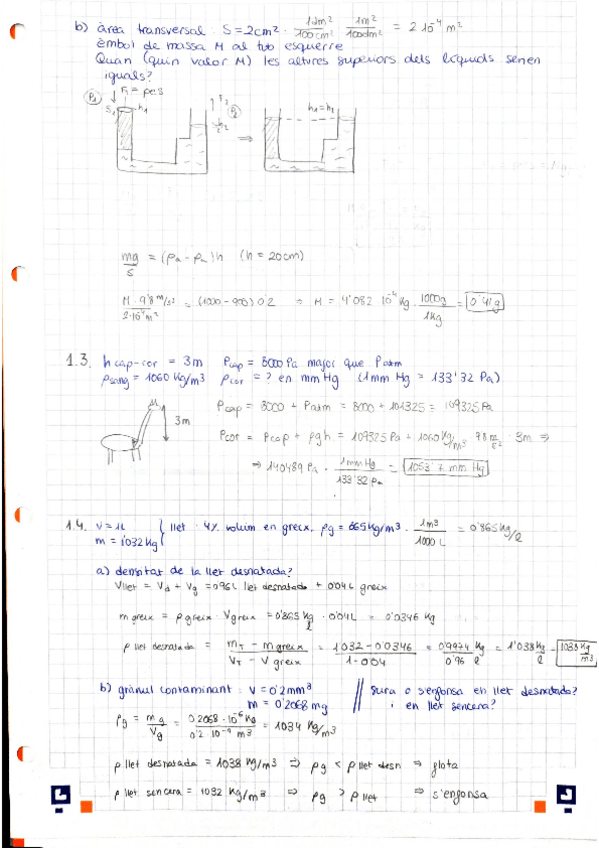 b) àrea transversal: S = 2cm² · 1dm²/100cm² · 1m²/100dm² = 2·10⁻⁴ m²
èmbol de massa M al tub esquerre
Quan (quin valor M) les altures superiors dels líquids serien
iguals?
P₁ F₁ = pes S₁ h₁ h₂ P₂ ⇒ h₁ = h₂
mg/S = (ρa - ρh)h (h = 20cm)
M · 9'8 m/s² / 2·10⁻⁴ m² = (1000 - 900) 0'2 ⇒ M = 4'082 10⁻⁴ Kg · 1000g/1Kg = 0'41g
1.3. h cap-cor = 3m Pcap = 8000 Pa major que Patm
ρsang = 1060 Kg/m³ Pcor = ? en mm Hg (1mm Hg = 133'32 Pa)
3m
Pcap = 8000 + Patm = 8000 + 101325 = 109325 Pa
Pcor = Pcap + ρgh = 109325 Pa + 1060 Kg/m³ · 9'8 m/s² · 3m ⇒
⇒ 140489 Pa · 1mmHg/133'32 Pa = 1053'7 mm Hg
1.4. V = 1L
m = 1'032 Kg
llet: 4% volum en greix, ρg = 865 Kg/m³ · 1m³/1000 L = 0'865 Kg/l
a) densitat de la llet desnatada?
Vllet = Vd + Vg = 0'96L llet desnatada + 0'04L greix
m greix = ρ greix · V greix = 0'865 Kg/l · 0'04L = 0'0346 Kg
ρ llet desnatada = mT - m greix / VT - V greix = 1'032 - 0'0346 / 1 - 0'04 = 0'9974 Kg / 0'96 l = 1'038 Kg/l = 1038 Kg/m³
b) grànul contaminant: V = 0'2mm³
m = 0'2068 mg
Sura o s'enfonsa en llet desnatada?
i en llet sencera?
ρg = mg/Vg = 0'2068 · 10⁻⁶ Kg / 0'2 · 10⁻⁹ m³ = 1034 Kg/m³
ρ llet desnatada = 1038 Kg/m³ ⇒ ρg < ρ llet desn ⇒ flota
ρ llet sencera = 1032 Kg/m³ ⇒ ρg > ρ llet ⇒ s'enfonsa